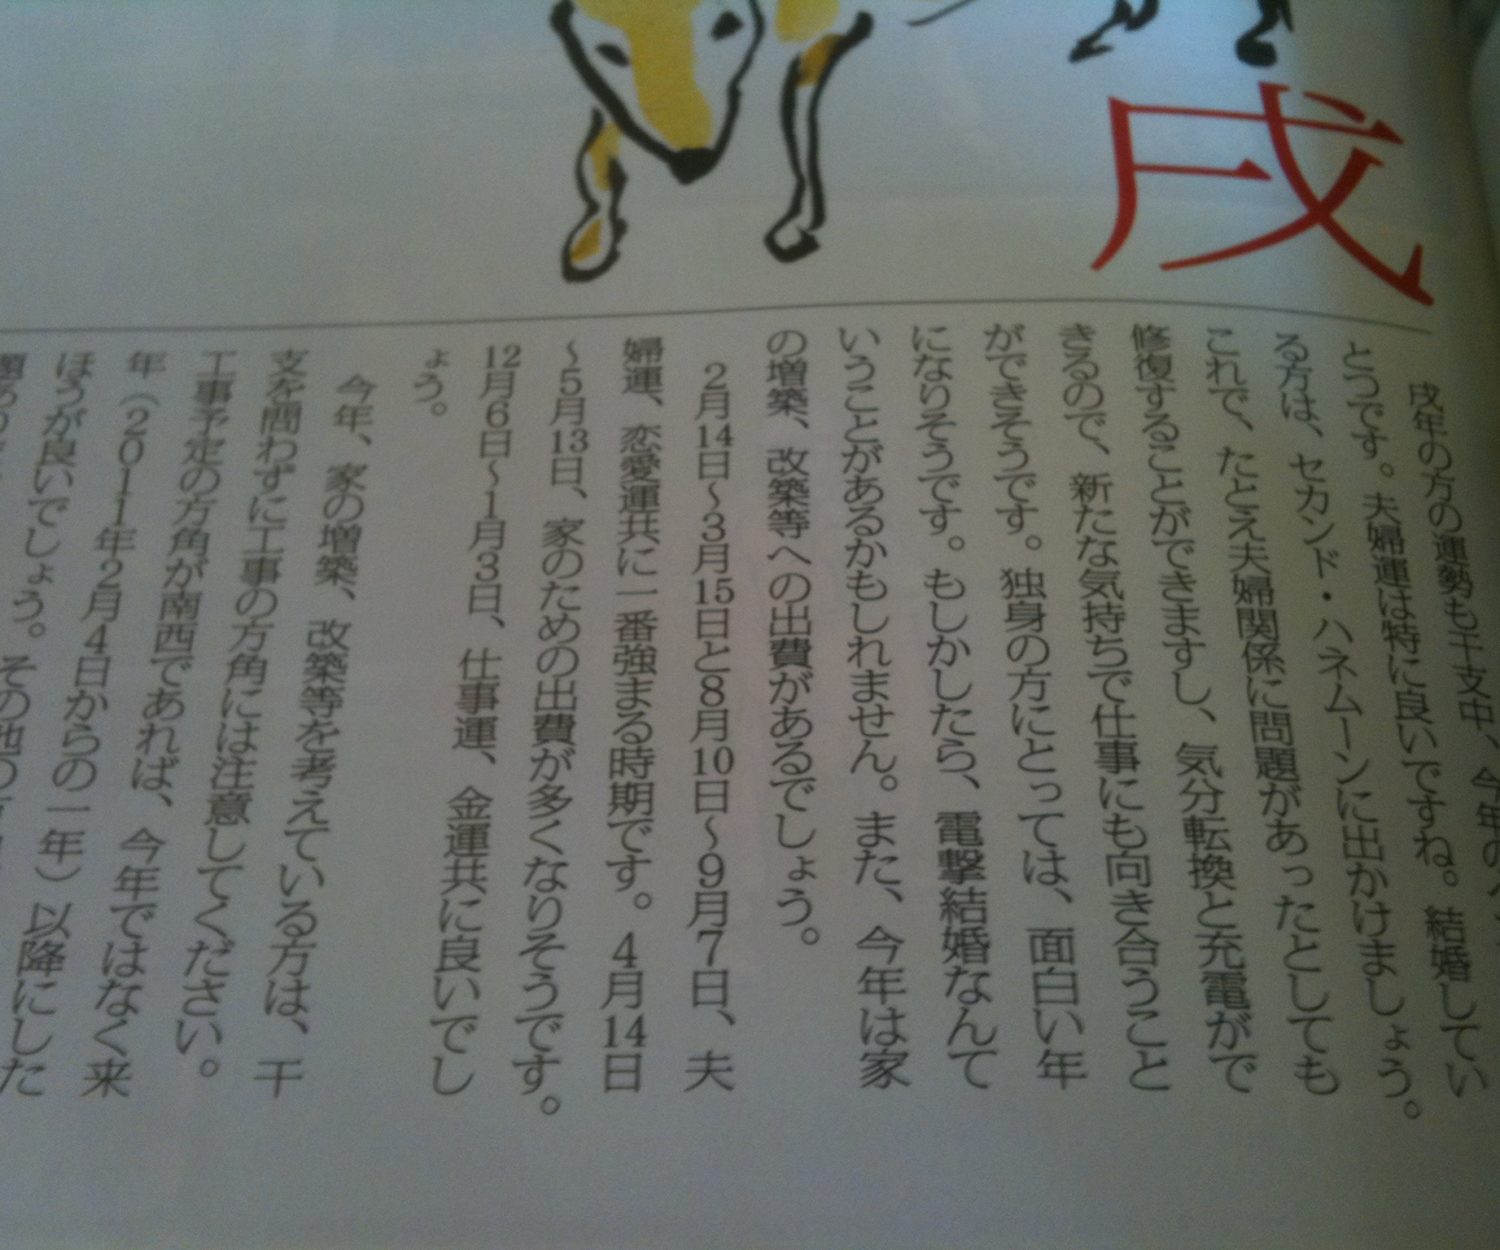 戌
戌年の方の運勢も干支中、今年のベ
とつです。夫婦運は特に良いですね。結婚してい
る方は、セカンド・ハネムーンに出かけましょう。
これで、たとえ夫婦関係に問題があったとしても
修復することができますし、気分転換と充電がで
きるので、新たな気持ちで仕事にも向き合うこと
ができそうです。独身の方にとっては、面白い年
になりそうです。もしかしたら、電撃結婚なんて
いうことがあるかもしれません。また、今年は家
の増築、改築等への出費があるでしょう。
2月14日〜3月15日と8月10日〜9月7日、夫
婦運、恋愛運共に一番強まる時期です。4月14日
〜5月13日、家のための出費が多くなりそうです。
12月6日〜1月3日、仕事運、金運共に良いでし
ょう。
今年、家の増築、改築等を考えている方は、干
支を問わずに工事の方角には注意してください。
工事予定の方角が南西であれば、今年ではなく来
年（2011年2月4日からの一年）以降にした
ほうが良いでしょう。その他の方